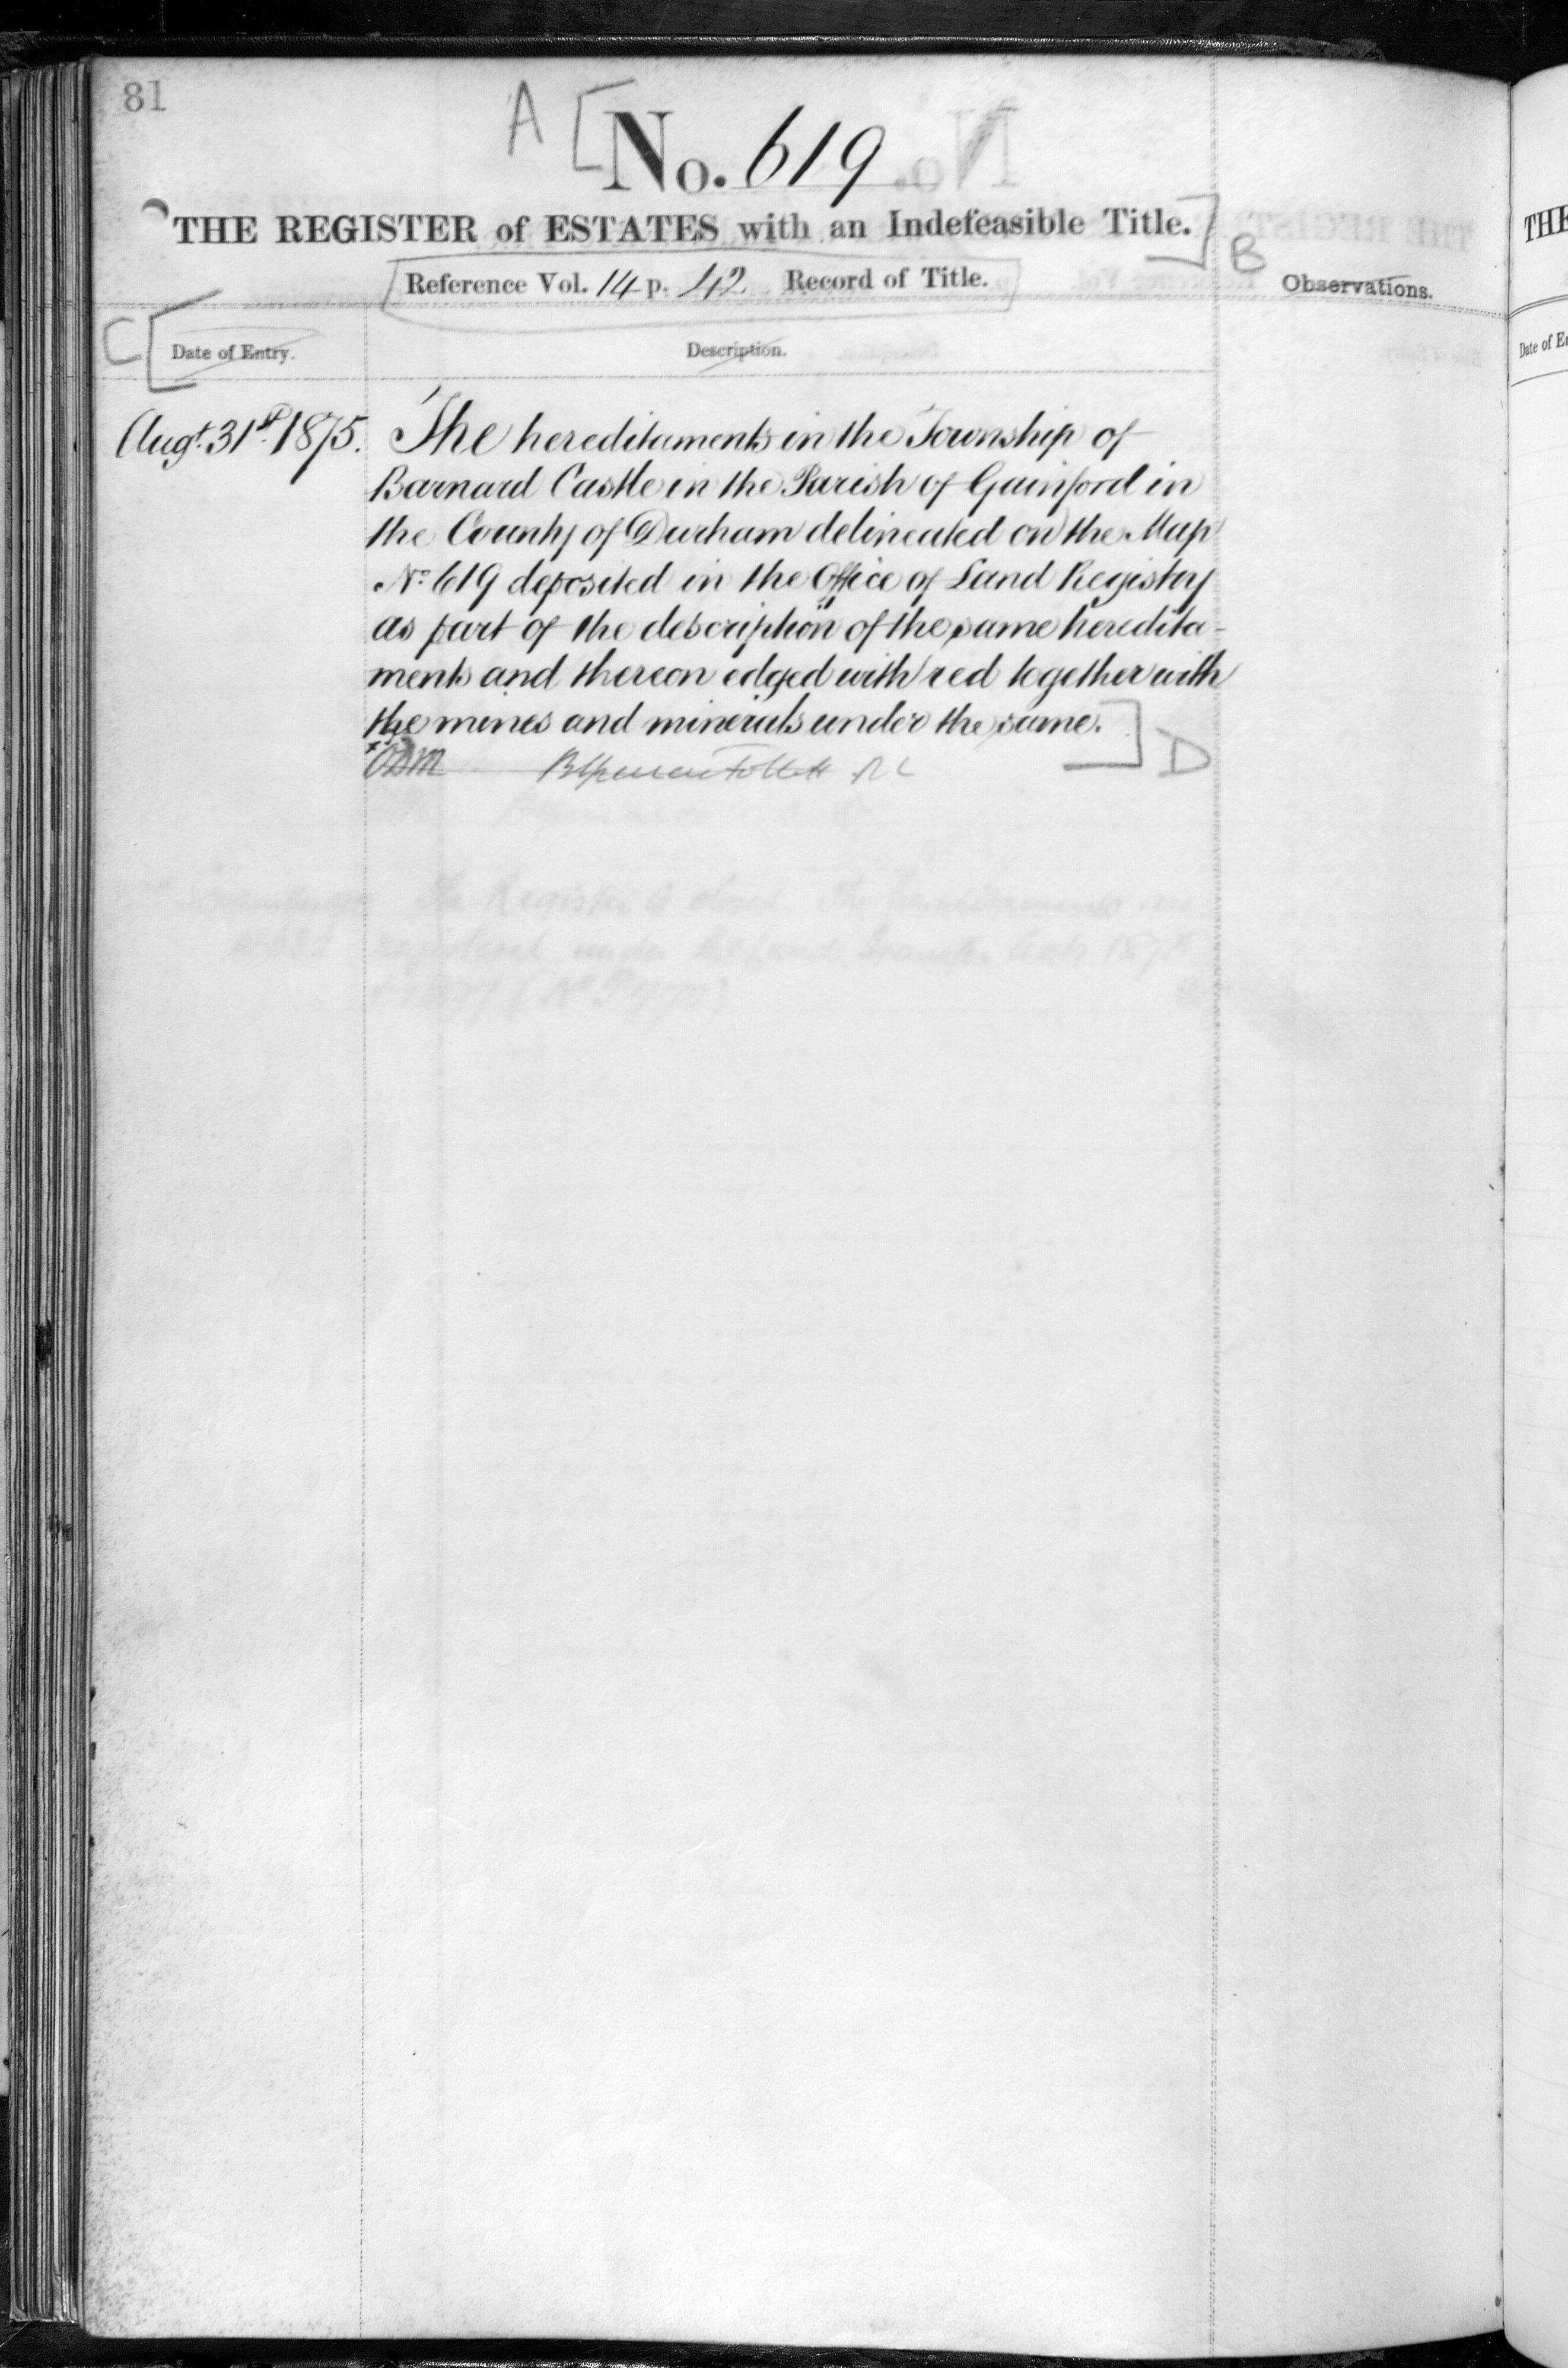 81
A [ No. 619
THE REGISTER of ESTATES with an Indefeasible Title. ] B
Reference Vol. 14 p. 42 Record of Title.
Observations.
C [ Date of Entry.
Description.
Augt. 31st. 1875. The hereditaments in the Township of
Barnard Castle in the Parish of Gainford in
the County of Durham delineated on the Map
No. 619 deposited in the Office of Land Registry
as part of the description of the same heredita-
ments and thereon edged with red together with
the mines and minerals under the same. ] D
THE
Date of En